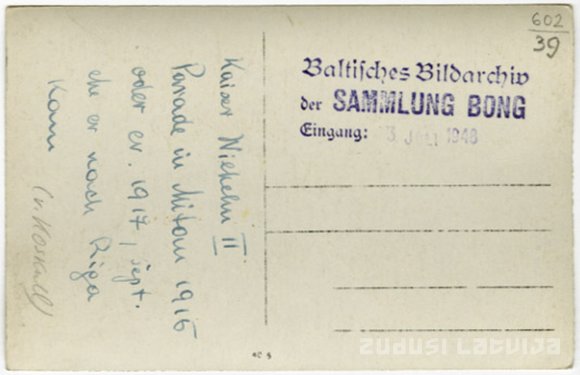 602
39
Baltisches Bildarchiv
der SAMMLUNG BONG
Eingang: 3. JULI 1948
Kaiser Wilhelm II
Parade in Mitau 1916
oder er. 1917, sept.
ehe er nach Riga
kam
zudusi latvija